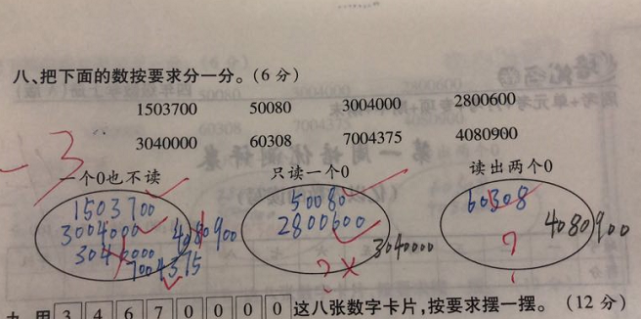 八、把下面的数按要求分一分。(6 分)
1503700 50080 3004000 2800600
3040000 60308 7004375 4080900
-3
一个0也不读 只读一个0 读出两个0
1503700 50080 60308
3004000 4080900 2800600 4080900
3040000 3040000
7004375 ?× ?
九、用 3 4 6 7 0 0 0 0 这八张数字卡片,按要求摆一摆。 (12 分)